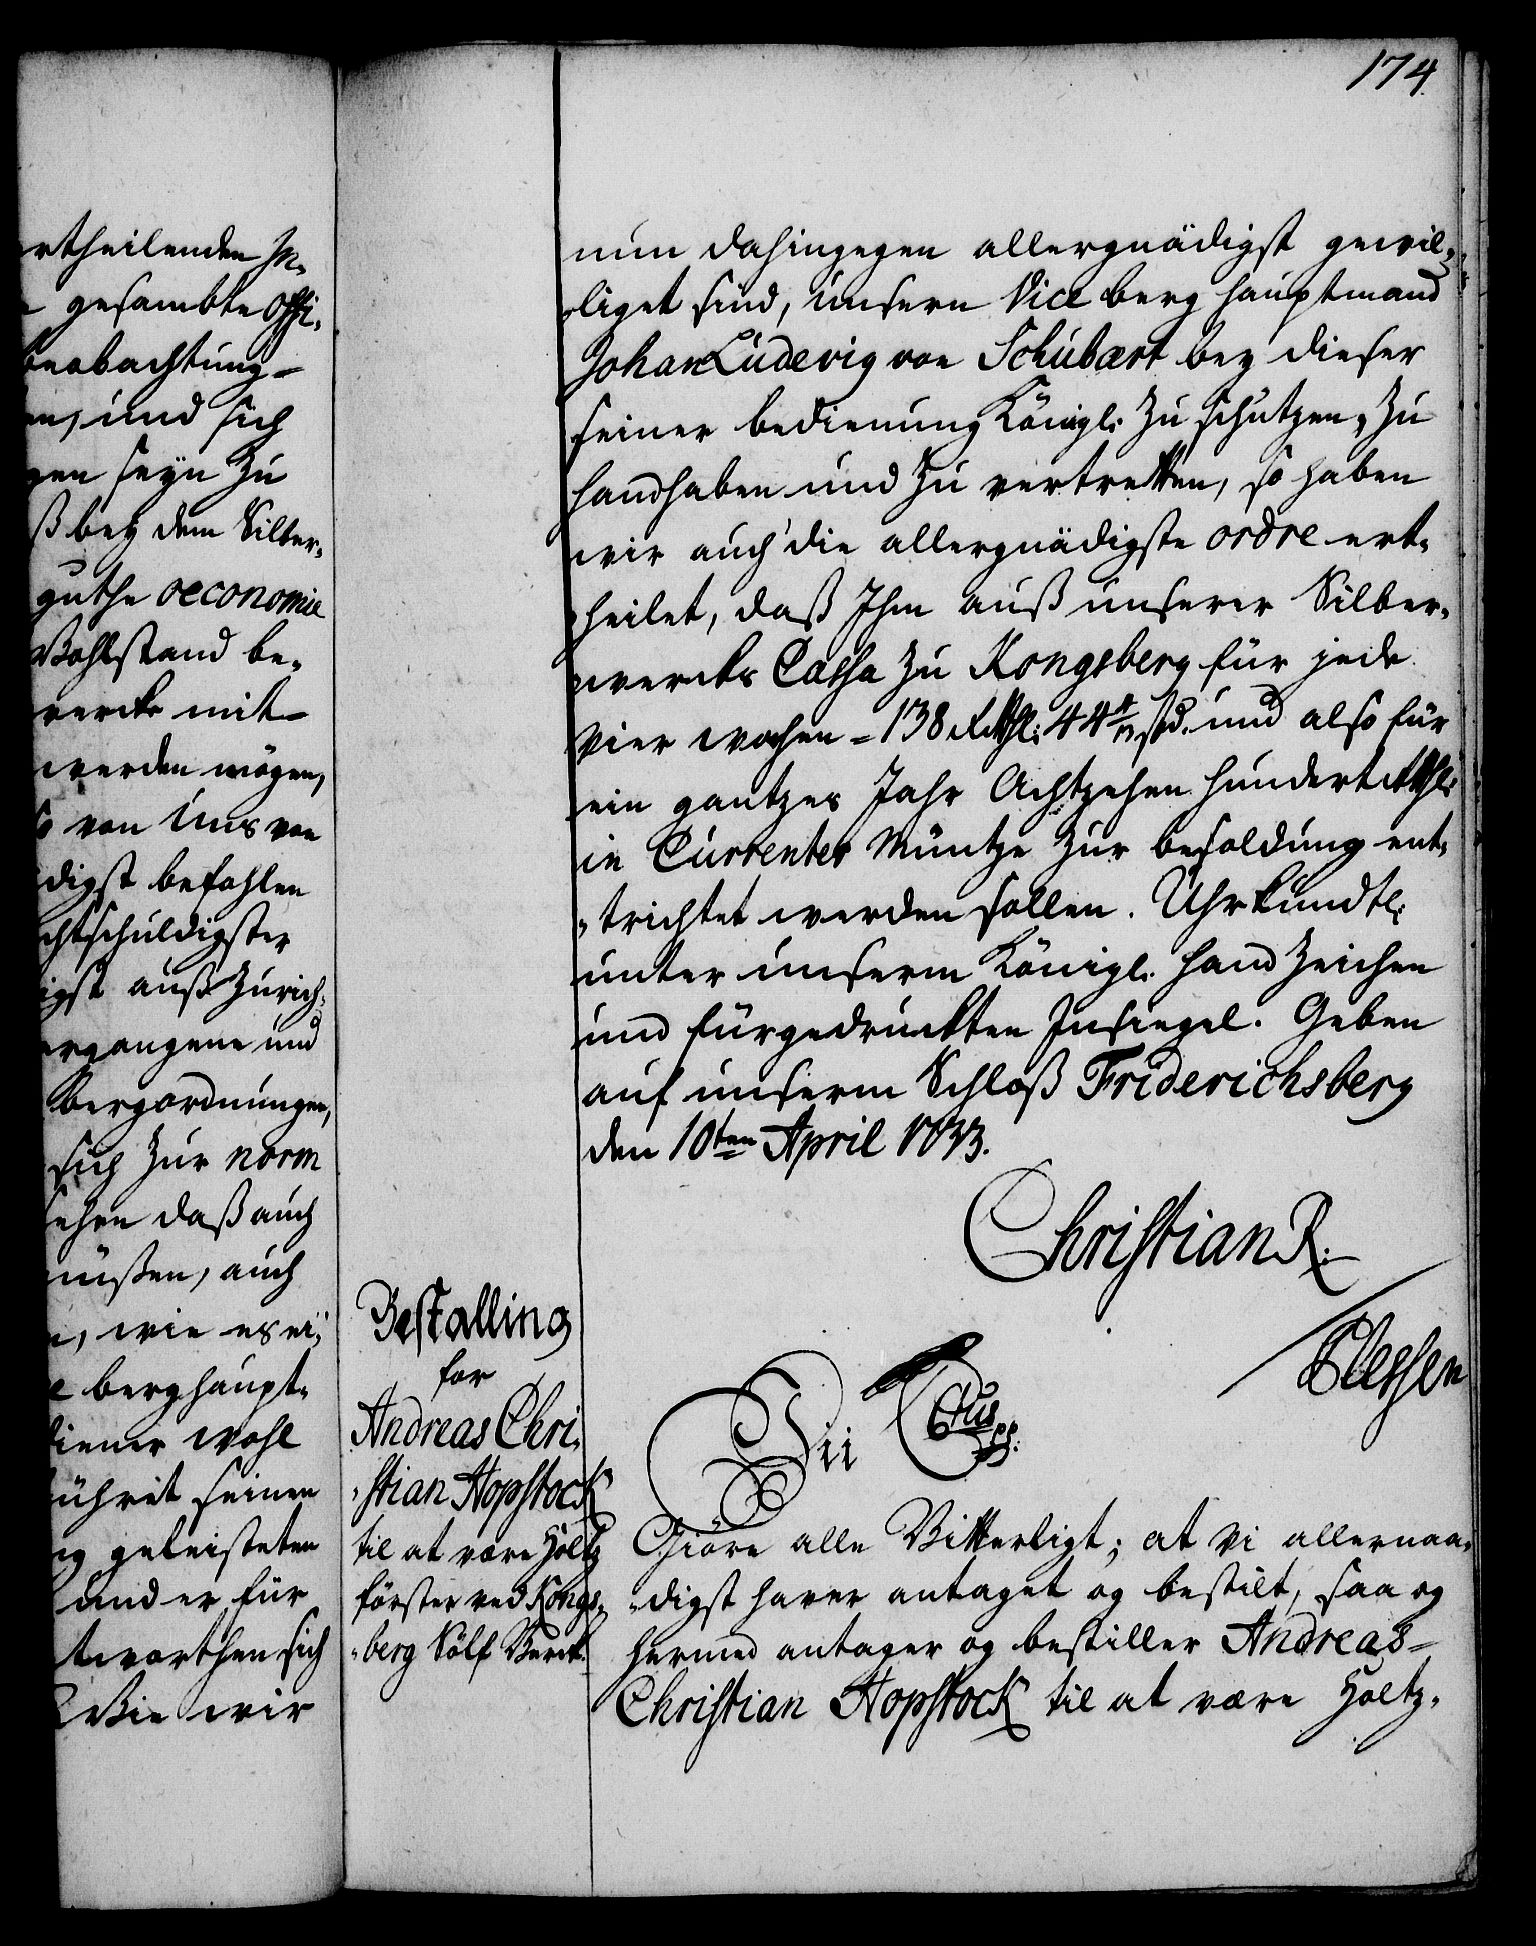 174.
rtheilenden In„
gesambte Offi„
beobachtung
en, und sich
gen seyn zu
ß bey dem Silber„
guthe oeconomie
Wohlstand be„
wercks mit
werden mögen,
so von Uns von
digst befohlen
chtschuldigster
igst auß Zurich„
ergangene und
Bergordnungen,
sich zur norm
sehen daß auch
müßen, auch
n, wie es ei„
e berghaupt„
diener wohl
ühret seinen
ng geleisteten
und er für
tworthen sich
Wie wir
nun dahingegen allergnädigst gewil„
liget sind, unsern Vice berg hauptmand
Johan Ludevig von Schubært bey dieser
seiner bedienung Königl: zu schutzen, zu
handhaben und zu vertretten, so haben
wir auch die allergnädigste ordre ert„
heilet, daß Ihm auß unserer Silber„
wercks Cassa zu Kongsberg für jede
vier wochen = 138 Rthl: 44 4/13 ſtd. und also für
ein gantzes Jahr Achtzehen hundert Rthl:
in Currenter Müntze zur besoldung ent„
„trichtet werden sollen. Uhrkundtl:
unter unserm Königl. Hand Zeichen
und fürgedruckten Insiegel. Geben
auf unserm Schloß Friderichsberg
den 10ten April 1733.
Christian R.
Plessen
Bestalling
for
Andreas Chri„
„stian Hopstock
til at være Holtz
förster ved Kongs„
„berg Sölf Werck.
Vii C6tus pp:
Giöre alle Vitterligt; at Vi allernaa„
„digst haver antaget og bestilt, saa og
hermed antager og bestiller Andreas
Christian Hopstock til at være Holtz„